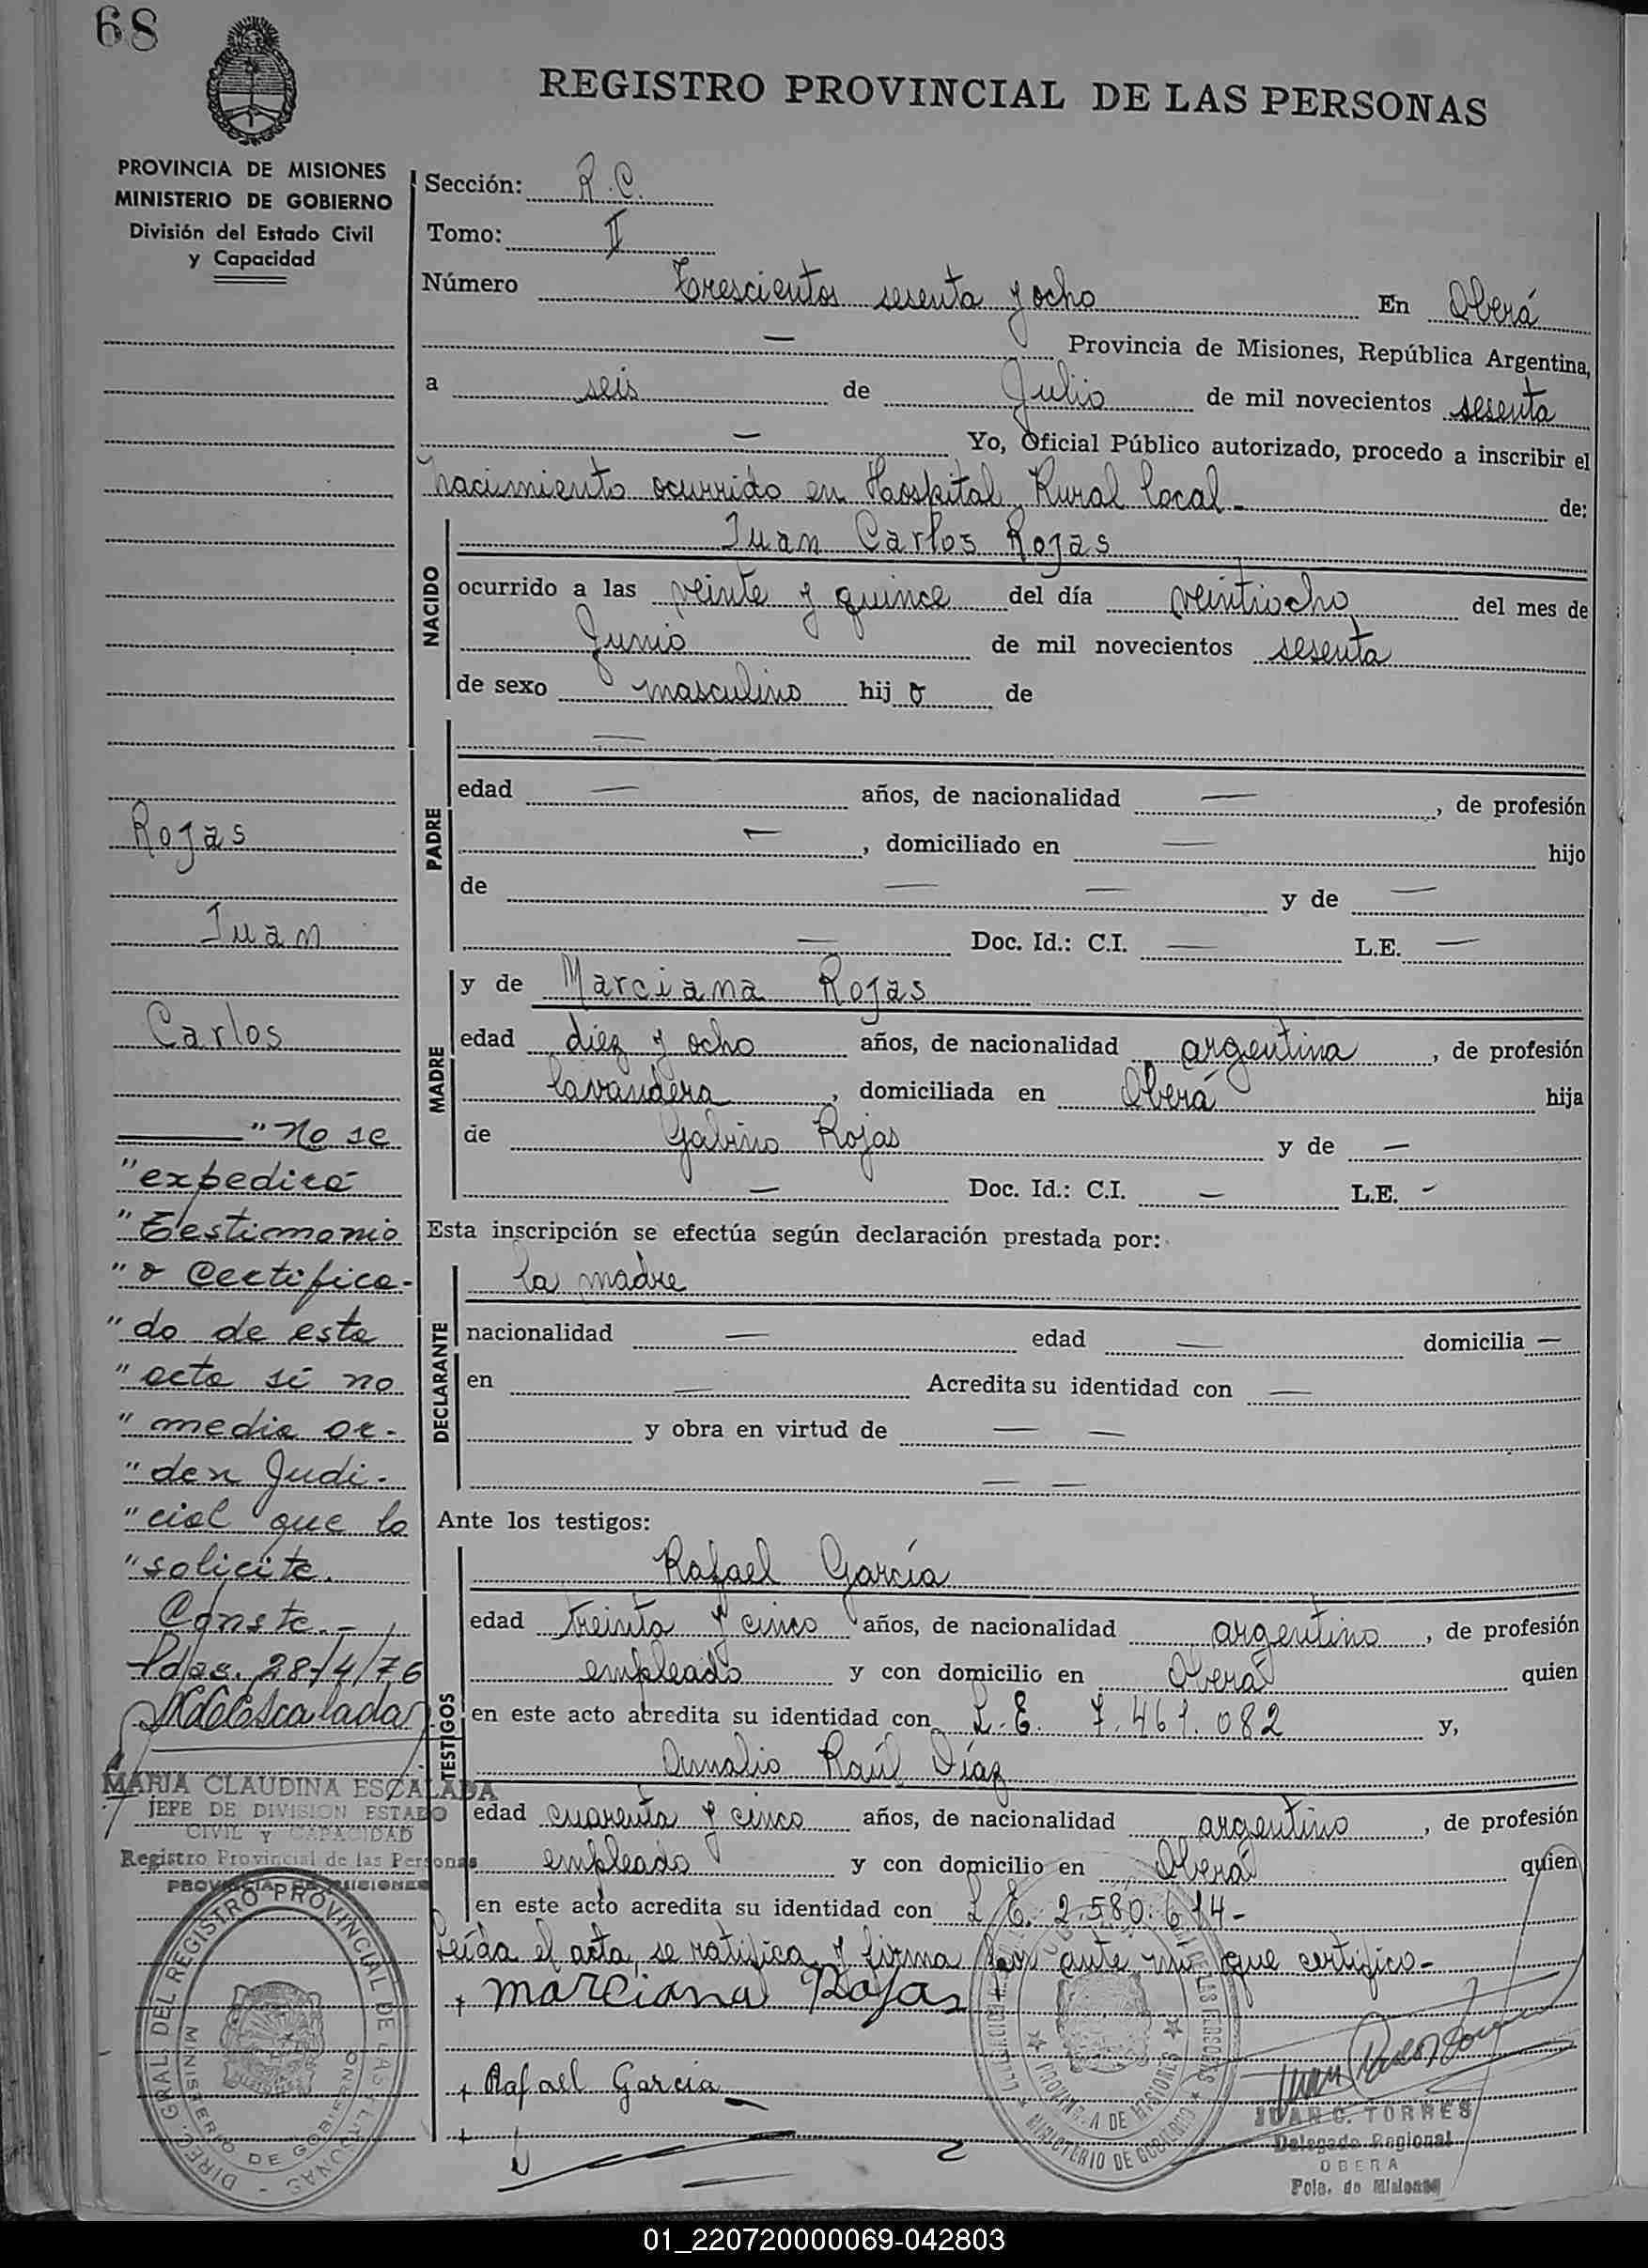 68
REGISTRO PROVINCIAL DE LAS PERSONAS
PROVINCIA DE MISIONES
MINISTERIO DE GOBIERNO
División del Estado Civil
y Capacidad
Sección: R.C.
Tomo: II
Número Trescientos sesenta y ocho En Oberá
— Provincia de Misiones, República Argentina,
a seis de Julio de mil novecientos sesenta
— Yo, Oficial Público autorizado, procedo a inscribir el
nacimiento ocurrido en Hospital Rural local - de:
NACIDO
Juan Carlos Rojas
ocurrido a las veinte y quince del día veintiocho del mes de
Junio de mil novecientos sesenta
de sexo masculino hij o de
PADRE
—
edad — años, de nacionalidad —, de profesión
—, domiciliado en — hijo
de — — y de —
— Doc. Id.: C.I. — L.E. —
MADRE
y de Marciana Rojas
edad diez y ocho años, de nacionalidad argentina, de profesión
lavandera, domiciliada en Oberá hija
de Gabino Rojas y de —
— Doc. Id.: C.I. — L.E. -
Esta inscripción se efectúa según declaración prestada por:
DECLARANTE
la madre
nacionalidad — edad — domicilia —
en — Acredita su identidad con —
y obra en virtud de — —
— —
Ante los testigos:
TESTIGOS
Rafael García
edad treinta y cinco años, de nacionalidad argentino, de profesión
empleado y con domicilio en Oberá quien
en este acto acredita su identidad con L.E. 7.461.082 y,
Amalio Raúl Díaz
edad cuarenta y cinco años, de nacionalidad argentino, de profesión
empleado y con domicilio en Oberá quien
en este acto acredita su identidad con L.E. 2.580.614-
Leída el acta, se ratifica y firma por ante mi que certifico-
+ Marciana Rojas
+ Rafael Garcia
+
JUAN C. TORRES
Delegado Regional
OBERA
Pcia. de Misiones
Rojas
Juan
Carlos
"No se
"expedirá
"Testimonio
"o Certifica-
"do de esta
"acta si no
"media or-
"den Judi-
"cial que lo
"solicite.
Conste.-
Pdas. 28/4/76
MARIA CLAUDINA ESCALADA
JEFE DE DIVISION ESTADO
CIVIL Y CAPACIDAD
Registro Provincial de las Personas
PROVINCIA DE MISIONES
DIREC. GRAL. DEL REGISTRO PROVINCIAL DE LAS PERSONAS
MINISTERIO DE GOBIERNO
PROVINCIA DE MISIONES
MINISTERIO DE GOBIERNO
01_220720000069-042803